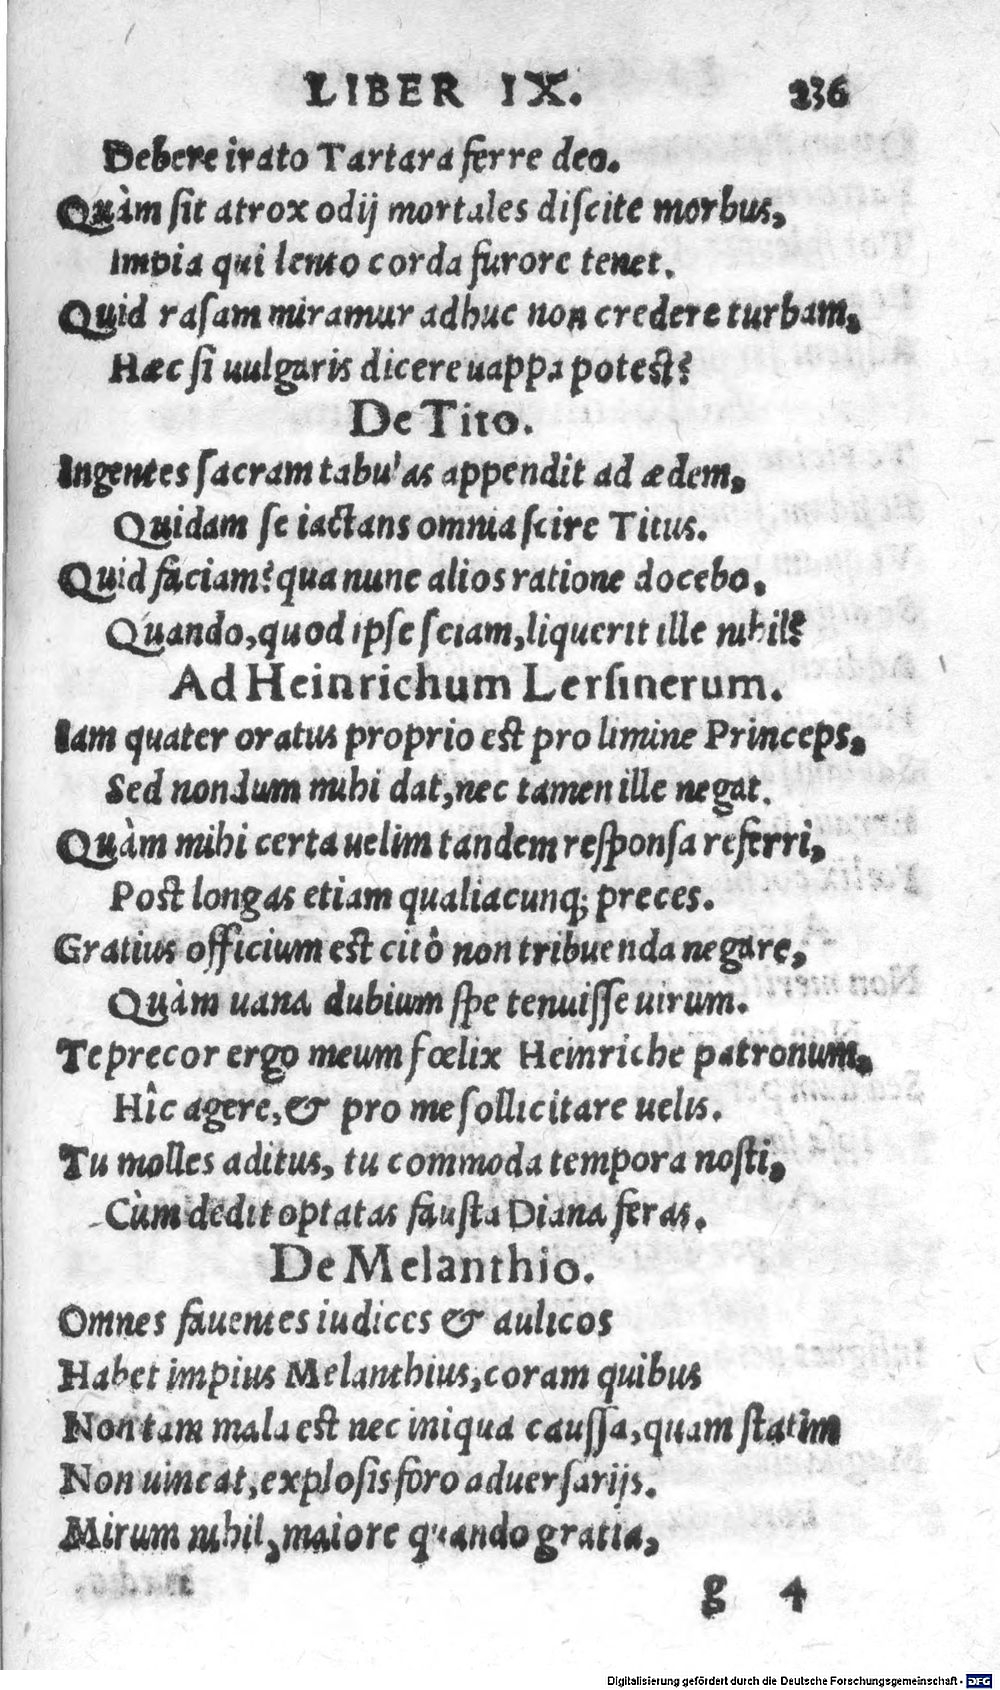 LIBER IX. 236
Debere irato Tartara ferre deo.
Quàm ſit atrox odij mortales diſcite morbus,
Impia qui lento corda furore tenet.
Quid raſam miramur adhuc non credere turbam,
Hæc ſi uulgaris dicere uappa poteſt?
De Tito.
Ingentes ſacram tabulas appendit ad ædem,
Quidam ſe iactans omnia ſcire Titus.
Quid faciam? qua nunc alios ratione docebo,
Quando, quod ipſe ſciam, liquerit ille nihil?
Ad Heinrichum Lerſinerum.
Iam quater oratus proprio eſt pro limine Princeps,
Sed nondum mihi dat, nec tamen ille negat.
Quàm mihi certa uelim tandem reſponſa referri,
Poſt longas etiam qualiacunq; preces.
Gratius officium eſt citò non tribuenda negare,
Quàm uana dubium ſpe tenuiſſe uirum.
Te precor ergo meum fœlix Heinriche patronum,
Hîc agere, & pro me ſollicitare uelis.
Tu molles aditus, tu commoda tempora noſti,
Cùm dedit optatas fauſta Diana feras.
De Melanthio.
Omnes fauentes iudices & aulicos
Habet impius Melanthius, coram quibus
Non tam mala eſt nec iniqua cauſſa, quam ſtatim
Non uincat, exploſis foro aduerſarijs.
Mirum nihil, maiore quando gratia,
g 4
Digitalisierung gefördert durch die Deutsche Forschungsgemeinschaft - DFG